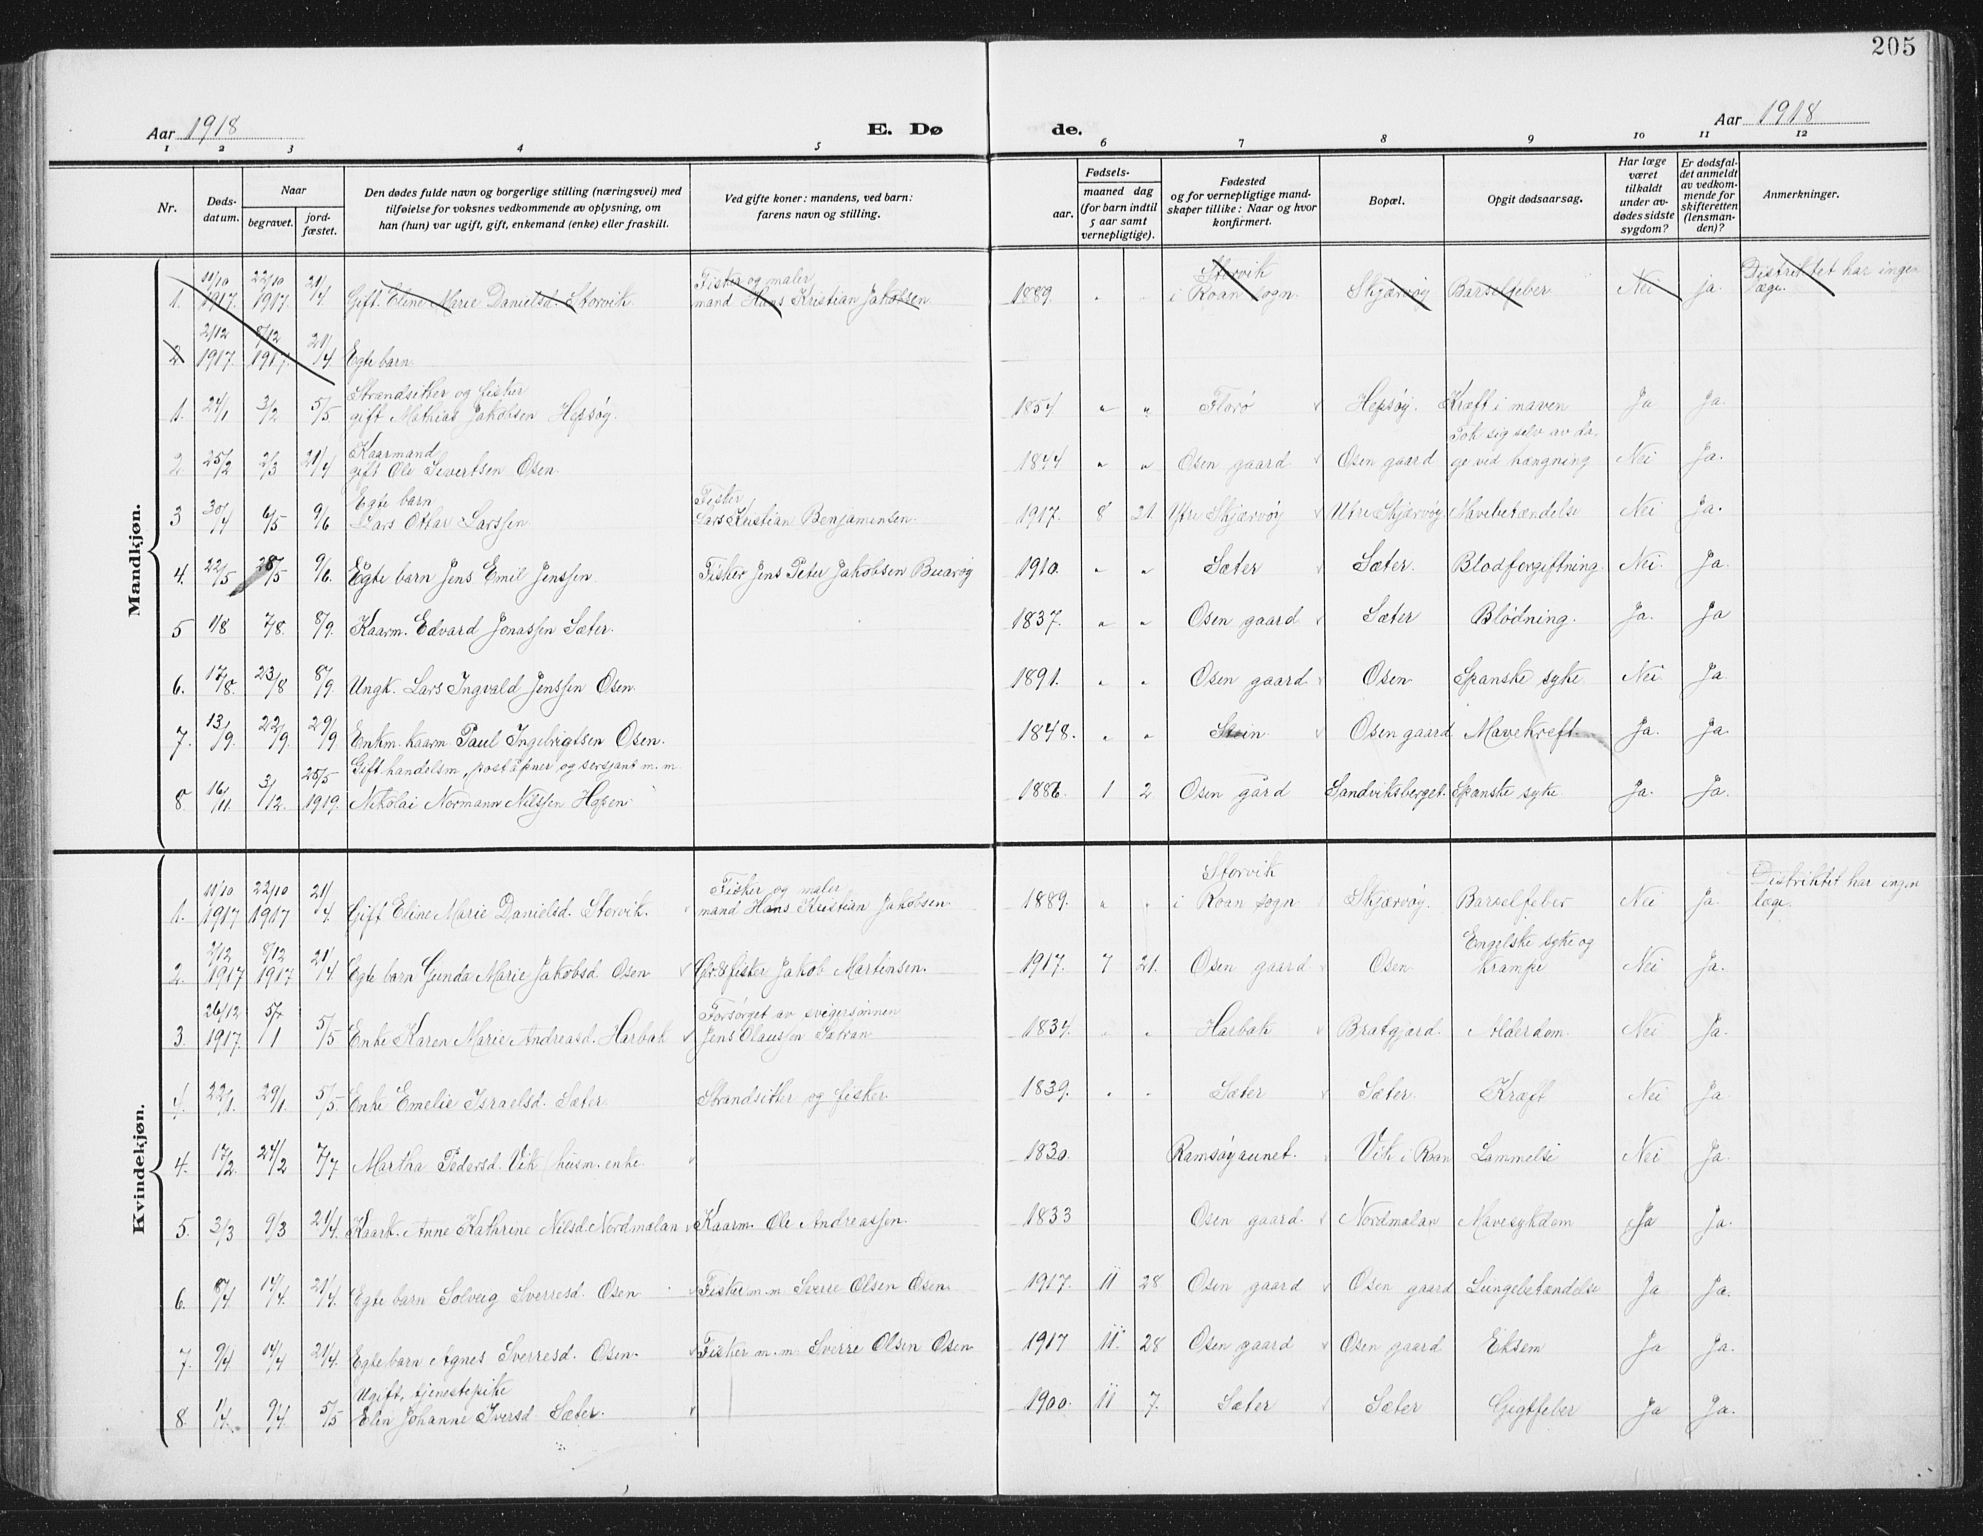 205
Aar 1918 E. Dø de. Aar 1918
1 2 3 4 5 6 7 8 9 10 11 12
Nr. Døds-datum. Naar begravet. jord-fæstet. Den dødes fulde navn og borgerlige stilling (næringsvei) med tilføielse for voksnes vedkommende av oplysning, om han (hun) var ugift, gift, enkemand (enke) eller fraskilt. Ved gifte koner: mandens, ved barn: farens navn og stilling. Fødsels- aar. maaned dag (for barn indtil 5 aar samt vernepligtige). Fødested og for vernepligtige mand-skaper tillike: Naar og hvor konfirmert. Bopæl. Opgit dødsaarsag. Har læge været tilkaldt under av-dødes sidste sygdom? Er dødsfal-det anmeldt av vedkom-mende for skifteretten (lensman-den)? Anmerkninger.
Mandkjøn.
1. 11/10 1917. 22/10 1917. 21/4. Gift Eline Marie Danielsd. Storvik. Fisker og maler mand Hans Kristian Jakobsen 1889. " " Storvik i Roan sogn. Skjærvøy Barselfeber Nei ja. Distriktet har ingen læge.
2 2/12 1917. 8/12 1917. 21/4. Egte barn
1. 24/1 3/2 5/5 Strandsitter og fisker gift Mathias Jakobsen Hepsøy. 1854 " " Florø Hepsøy. Kræft i maven Ja Ja.
2 25/2 2/3 21/4 Kaarmand gift Ole Sivertsen Osen. 1844 " " Osen gaard Osen gaard Tok sig selv av da-ge ved hængning Nei Ja.
3 30/4 6/5 9/6 Egte barn Lars Othar Larssen Fisker Lars Kristian Benjaminsen. 1917. 8 21. Ytre Skjærvøy Ytre Skjærvøy Mavebetændelse Nei Ja.
4. 22/5 28/5 9/6. Egte barn Jens Emil Jenssen. Fisker Jens Peter Jakobsen Buarøy 1910. " " Sæter Sæter. Blodforgiftning. Nei. Ja.
5 1/8 7/8. 8/9. Kaarm. Edvard Jonassen Sæter. 1837. " " Osen gaard Sæter Blødning. Ja. Ja
6. 17/8. 23/8 8/9. Ungk. Lars Ingvald Jenssen Osen 1891. " " Osen gaard Osen Spanske syke Nei Ja
7. 13/9. 22/9. 29/9. Enkm. kaarm. Paul Ingebrigtsen Osen. 1848. " " Stein Osen gaard Mavekreft. Ja. Ja.
8. 16/11 3/12. 25/5 1919. Gift handelsm, postaapner og sersjant m. m. Nikolai Normann Nilssen Hopen 1886. 1 2 Osen gård Sandviksberget. Spanske syke Ja. Ja.
Kvindekjøn.
1. 11/10 1917 22/10 1917 21/4. Gift Eline Marie Danielsd. Storvik. Fisker og maler mand Hans Kristian Jakobsen 1889. " " Storvik i Roan sogn Skjærvøy. Barselfeber Nei Ja. Distriktet har ingen læge.
2. 2/12 1917 8/12 1917 21/4 Egte barn Gunda Marie Jakobsd. Osen fisker Jakob Martinsen. 1917. 7 21. Osen gaard Osen. Engelske syke og Krampe Nei Ja.
3. 26/12 1917. 5/1 5/5 Enke Karen Marie Andreasd. Harbak Forsørget av svigersønnen Jens Olaussen Sætran 1834. " " Harbak Bratgjærd. Alderdom. Nei Ja.
4. 22/1. 29/1. 5/5. Enke Emelie Israelsd. Sæter Strandsitter og fisker. 1839. " " Sæter Sæter. Kræft Nei Ja
4. 17/2. 24/2 7/7 Martha Pedersd. Vik husm. enke. 1830. Ramsøyaunet. Vik i Roan Lammelse Nei Ja.
5. 3/3 9/3 21/4. Kaark. Anne Kathrine Nilsd. Nordmalan Kaarm. Ole Andreassen. 1833 Osen gaard. Nordmalan Mavesykdom Ja Ja.
6. 8/4 14/4. 21/4. Egte barn Solveig Sverresd. Osen Fisker m. m. Sverre Olsen Osen. 1917. 11 28 Osen gaard Osen gaard Lungebetændelse Ja Ja.
7. 9/4. 14/4 21/4. Egte barn Agnes Sverresd. Osen. Fisker m. m. Sverre Olsen Osen. 1917 11. 28 Osen gaard Osen gaard Eksem Ja Ja.
8. 1/4. 9/4. 5/5 Ugift, tjenestepike Elin Johanne Iversd. Sæter. 1900. 11 7. Sæter Sæter Gigtfeber Ja Ja.